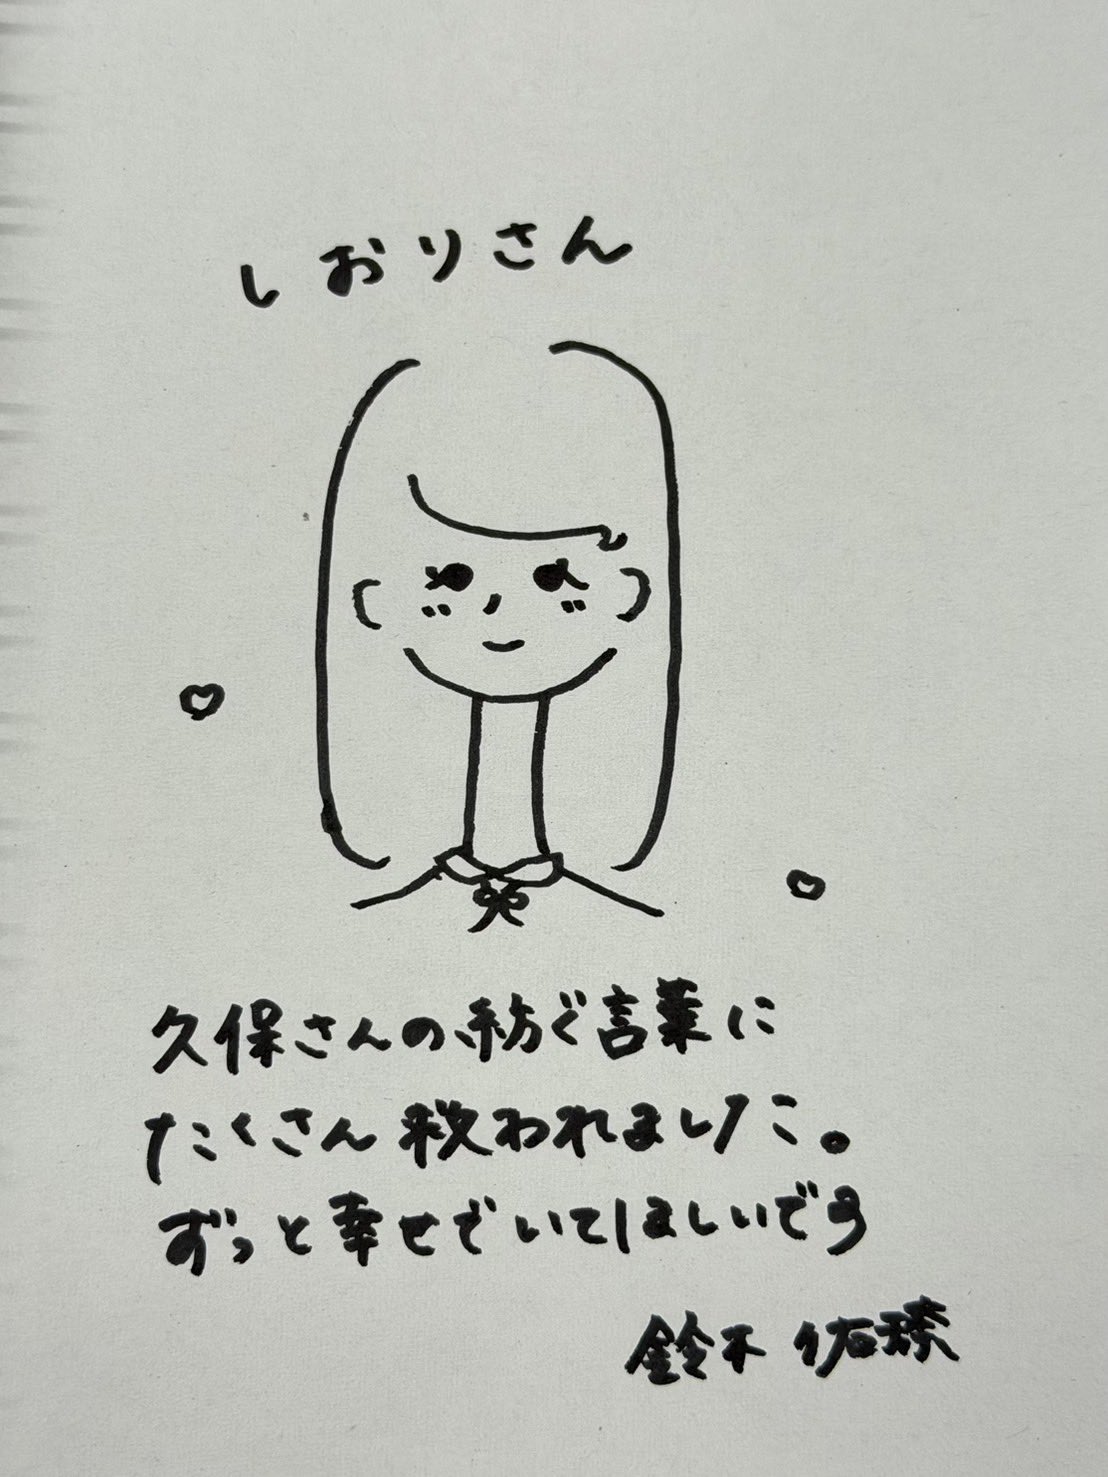 しおりさん
久保さんの紡ぐ言葉に
たくさん救われました。
ずっと幸せでいてほしいです
鈴木 佑捺